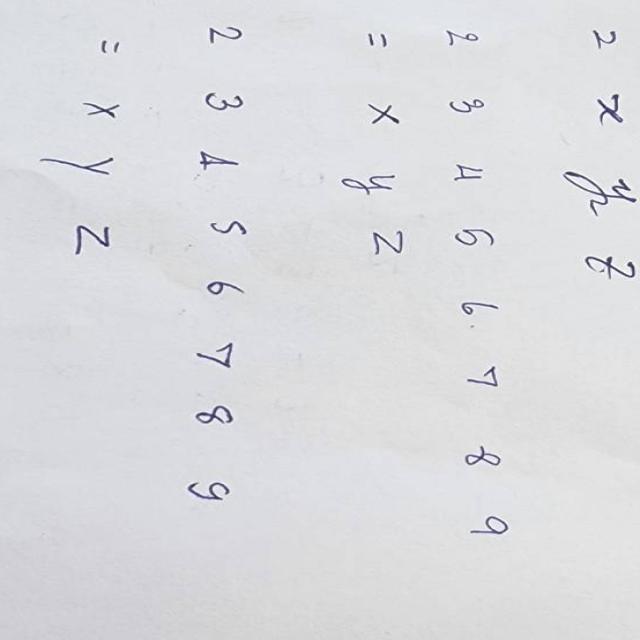 2 x y z
2 3 4 5 6 7 8 9
= x y z
2 3 4 5 6 7 8 9
= x y z